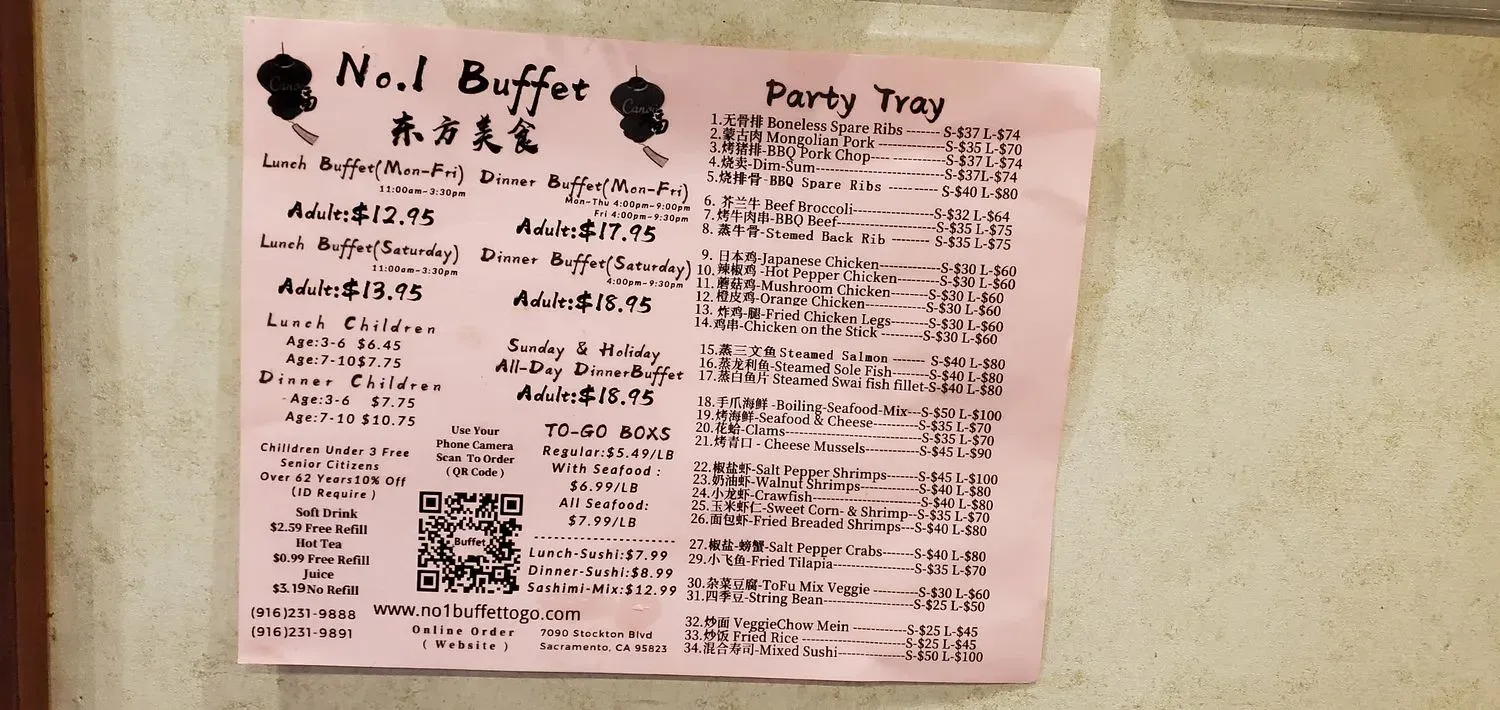 No.1 Buffet
东方美食
Canva
福
Canva
福
Lunch Buffet(Mon-Fri)
11:00am-3:30pm
Adult:$12.95
Lunch Buffet(Saturday)
11:00am-3:30pm
Adult:$13.95
Lunch Children
Age:3-6 $6.45
Age:7-10$7.75
Dinner Children
Age:3-6 $7.75
Age:7-10 $10.75
Dinner Buffet(Mon-Fri)
Mon-Thu 4:00pm-9:00pm
Fri 4:00pm-9:30pm
Adult:$17.95
Dinner Buffet(Saturday)
4:00pm-9:30pm
Adult:$18.95
Sunday & Holiday
All-Day DinnerBuffet
Adult:$18.95
Chilldren Under 3 Free
Senior Citizens
Over 62 Years10% Off
(ID Require )
Soft Drink
$2.59 Free Refill
Hot Tea
$0.99 Free Refill
Juice
$3.19No Refill
Use Your
Phone Camera
Scan To Order
( QR Code )
Buffet
TO-GO BOXS
Regular:$5.49/LB
With Seafood :
$6.99/LB
All Seafood:
$7.99/LB
Lunch-Sushi:$7.99
Dinner-Sushi:$8.99
Sashimi-Mix:$12.99
(916)231-9888
(916)231-9891
www.no1buffettogo.com
Online Order
( Website )
7090 Stockton Blvd
Sacramento, CA 95823
Party Tray
1.无骨排 Boneless Spare Ribs ------- S-$37 L-$74
2.蒙古肉 Mongolian Pork ---------------S-$35 L-$70
3.烤猪排-BBQ Pork Chop---- ------------S-$37 L-$74
4.烧卖-Dim-Sum---------------------------S-$37L-$74
5.烧排骨-BBQ Spare Ribs ---------- S-$40 L-$80
6. 芥兰牛 Beef Broccoli------------------S-$32 L-$64
7.烤牛肉串-BBQ Beef--------------------S-$35 L-$75
8. 蒸牛骨-Stemed Back Rib -------- S-$35 L-$75
9. 日本鸡-Japanese Chicken-------------S-$30 L-$60
10. 辣椒鸡 -Hot Pepper Chicken---------S-$30 L-$60
11.蘑菇鸡-Mushroom Chicken--------S-$30 L-$60
12. 橙皮鸡-Orange Chicken-------------S-$30 L-$60
13. 炸鸡-腿-Fried Chicken Legs--------S-$30 L-$60
14.鸡串-Chicken on the Stick ---------S-$30 L-$60
15.蒸三文鱼 Steamed Salmon ------ S-$40 L-$80
16.蒸龙利鱼-Steamed Sole Fish-------S-$40 L-$80
17.蒸白鱼片 Steamed Swai fish fillet-S-$40 L-$80
18.手爪海鲜 -Boiling-Seafood-Mix---S-$50 L-$100
19.烤海鲜-Seafood & Cheese-----------S-$35 L-$70
20.花蛤-Clams---------------------------S-$35 L-$70
21.烤青口 - Cheese Mussels------------S-$45 L-$90
22.椒盐虾-Salt Pepper Shrimps-------S-$45 L-$100
23.奶油虾-Walnut Shrimps-------------S-$40 L-$80
24.小龙虾-Crawfish------------------------S-$40 L-$80
25.玉米虾仁-Sweet Corn- & Shrimp--S-$35 L-$70
26.面包虾-Fried Breaded Shrimps---S-$40 L-$80
27.椒盐-螃蟹-Salt Pepper Crabs-------S-$40 L-$80
29.小飞鱼-Fried Tilapia------------------S-$35 L-$70
30.杂菜豆腐-ToFu Mix Veggie --------S-$30 L-$60
31.四季豆-String Bean--------------------S-$25 L-$50
32.炒面 VeggieChow Mein -------------S-$25 L-$45
33.炒饭 Fried Rice -----------------------S-$25 L-$45
34.混合寿司-Mixed Sushi---------------S-$50 L-$100